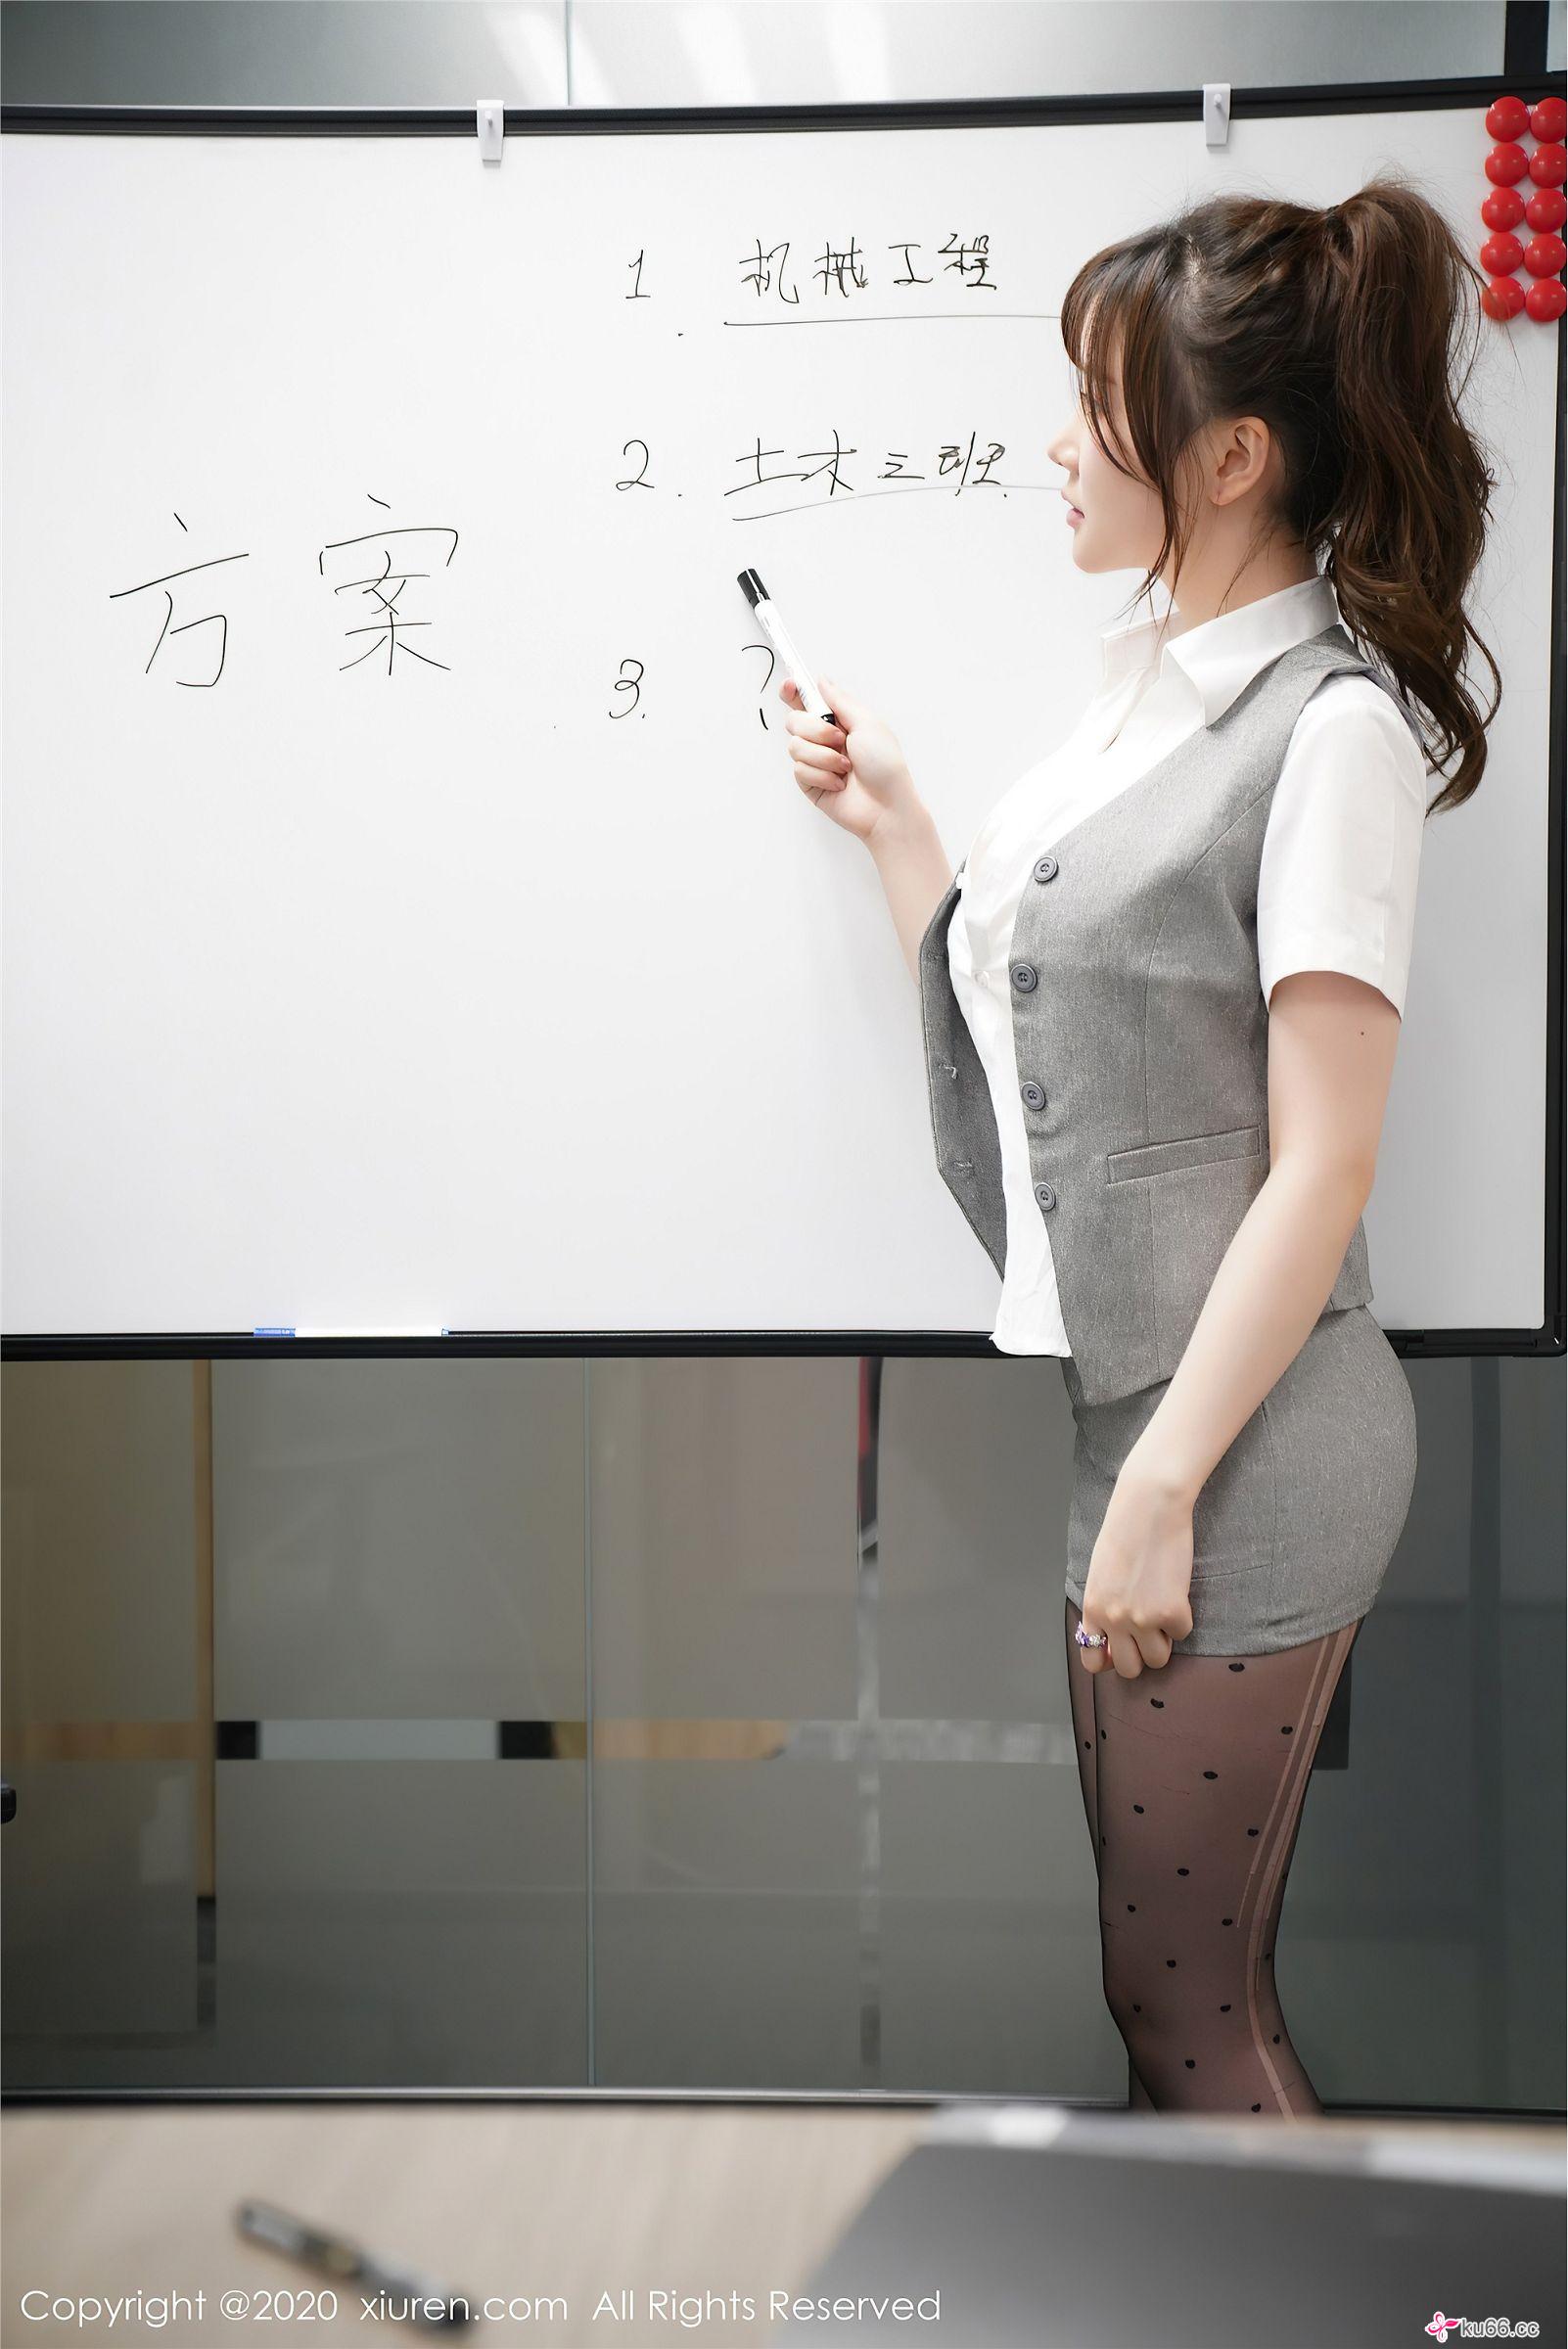 方案
1. 机械工程
2. 土木三班
3. ?
Copyright @2020 xiuren.com All Rights Reserved
ku66.cc